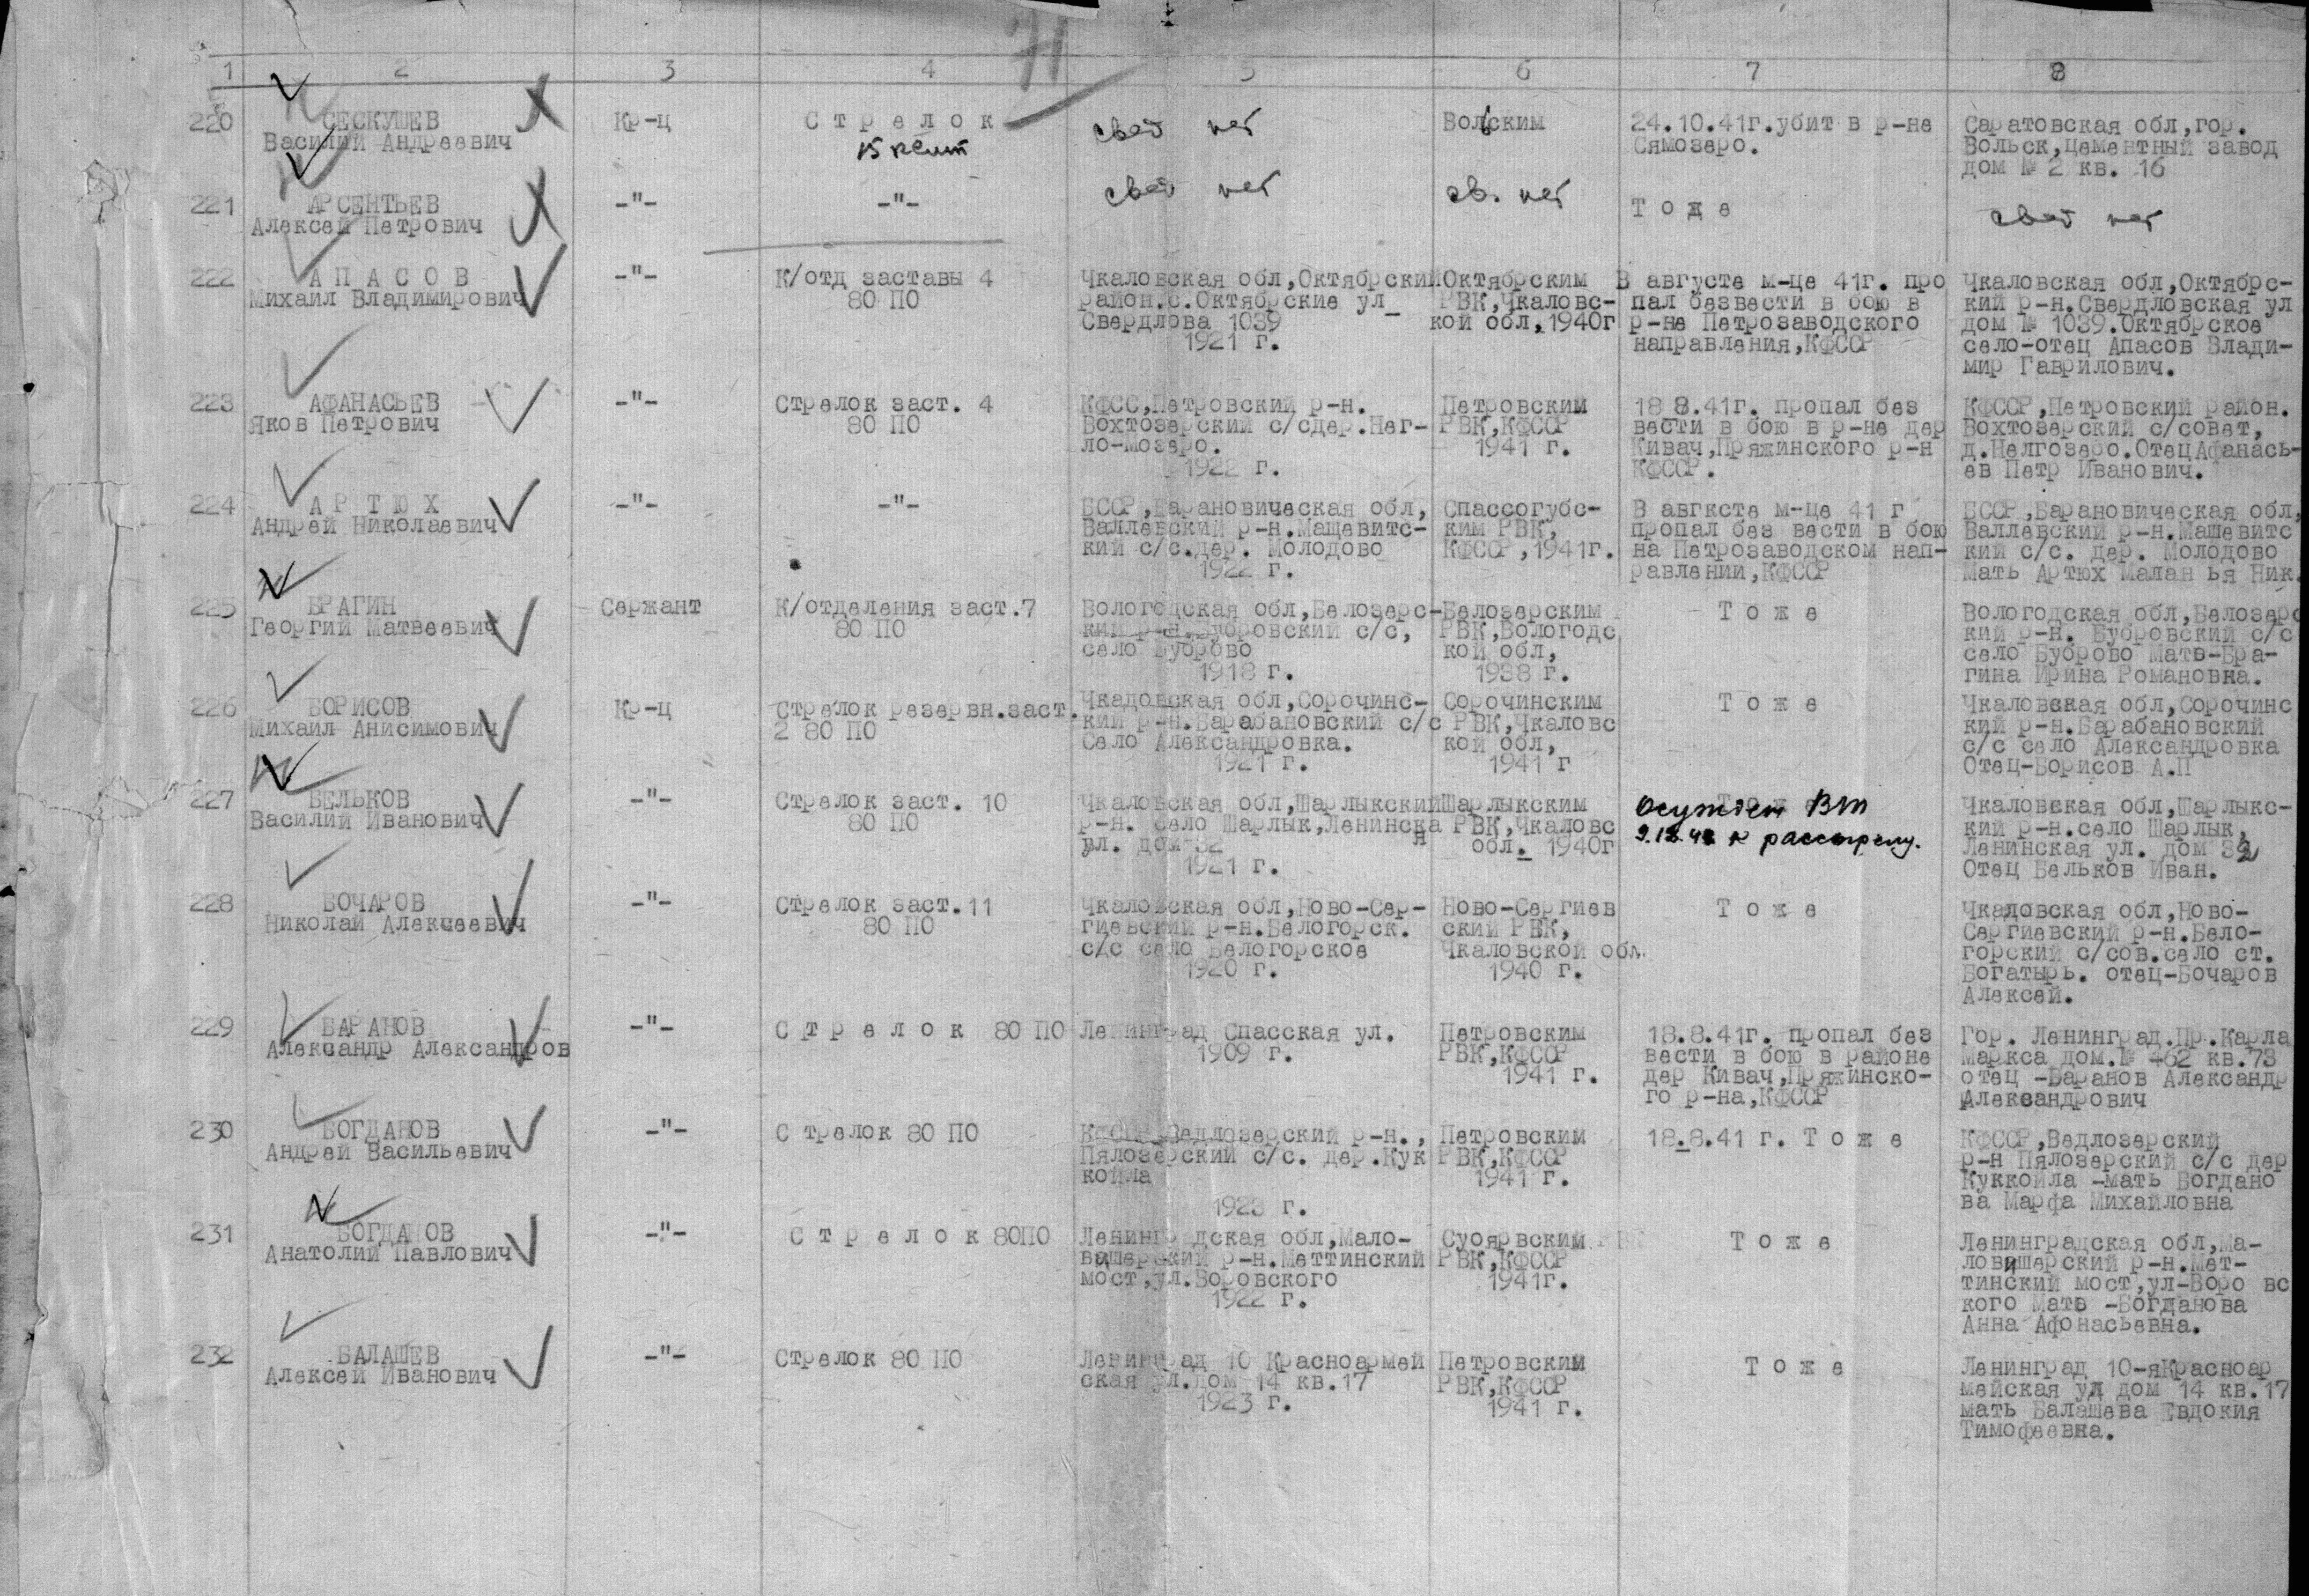 71
1 2 3 4 5 6 7 8
220 СЕСКУШЕВ Кр-ц С т р е л о к свед нет Вольским 24.10.41г.убит в р-не Саратовская обл,гор.
Василий Андреевич Сямозеро. Вольск,цементный завод
дом № 2 кв. 16
221 АРСЕНТЬЕВ -"- -"- свед нет св. нет Т о ж е свед нет
Алексей Петрович
222 А П А С О В -"- К/отд заставы 4 Чкаловская обл,Октябрский Октябрским В августе м-це 41г. про Чкаловская обл,Октябрс-
Михаил Владимирович 80 ПО район.с.Октябрские ул РВК,Чкаловс- пал безвести в бою в кий р-н.Свердловская ул
Свердлова 1039 кой обл,1940г р-не Петрозаводского дом № 1039.Октябрское
1921 г. направления,КФССР село-отец Апасов Влади-
мир Гаврилович.
223 АФАНАСЬЕВ -"- Стрелок заст. 4 КФСС,Петровский р-н. Петровским 18 8.41г. пропал без КФССР,Петровский район.
Яков Петрович 80 ПО Вохтозерский с/сдер.Нег- РВК,КФССР вести в бою в р-не дер Вохтозерский с/совет,
ло-мозеро. 1941 г. Кивач,Пряжинского р-н д.Нелгозеро.ОтецАфанась-
1922 г. КФССР. ев Петр Иванович.
224 А Р Т Ю Х -"- -"- БССР,Барановическая обл, Спассогубс- В авгксте м-це 41 г БССР,Барановическая обл,
Андрей Николаевич Валлевский р-н.Мащевитс- ким РВК, пропал без вести в бою Валлевский р-н.Машевитс
кий с/с.дер. Молодово КФССР,1941г. на Петрозаводском нап- кий с/с. дер. Молодово
1922 г. равлении,КФССР Мать Артюх Малан ья Ник.
225 БРАГИН Сержант К/отделения заст.7 Вологодская обл,Белозерс- Белозерским Т о ж е Вологодская обл,Белозерс
Георгий Матвеевич 80 ПО кий р-н.Бубровский с/с, РВК,Вологодс кий р-н. Бубровский с/с
село Буброво кой обл, село Буброво Мать-Бра-
1918 г. 1938 г. гина Ирина Романовна.
226 БОРИСОВ Кр-ц Стрелок резервн.заст. Чкадовская обл,Сорочинс- Сорочинским Т о ж е Чкаловская обл,Сорочинс
Михаил Анисимович 2 80 ПО кий р-н.Барабановский с/с РВК,Чкаловс кий р-н.Барабановский
Село Александровка. кой обл, с/с село Александровка
1921 г. 1941 г Отец-Борисов А.П
227 БЕЛЬКОВ -"- Стрелок заст. 10 Чкаловская обл,Шарлыкский Шарлыкским Осужден ВТ Чкаловская обл,Шарлыкс-
Василий Иванович 80 ПО р-н. село Шарлык,Ленинска РВК,Чкаловс к расстрелу. кий р-н.село Шарлык,
ул. дом 32 я обл. 1940г Ленинская ул. дом 32
1921 г. Отец Бельков Иван.
228 БОЧАРОВ -"- Стрелок заст.11 Чкаловская обл,Ново-Сер- Ново-Сергиев Т о ж е Чкадовская обл,Ново-
Николай Алексеевич 80 ПО гиевский р-н.Белогорск. ский РВК, Сергиевский р-н.Бело-
с/с село Белогорское Чкаловской обл. горский с/сов.село ст.
1920 г. 1940 г. Богатырь. отец-Бочаров
Алексей.
229 БАРАНОВ -"- С т р е л о к 80 ПО Ленинград Спасская ул. Петровским 18.8.41г. пропал без Гор. Ленинград.Пр.Карла
Александр Александров 1909 г. РВК,КФССР вести в бою в районе Маркса дом.№ 462 кв.73
1941 г. дер Кивач,Пряжинско- отец -Баранов Александр
го р-на,КФССР Александрович
230 БОГДАНОВ -"- С трелок 80 ПО КФССР,Ведлозерский р-н., Петровским 18.8.41 г. Т о ж е КФССР,Ведлозерский
Андрей Васильевич Пялозерский с/с. дер.Кук РВК,КФССР р-н Пялозерский с/с дер
койла 1941 г. Куккойла -мать Богдано
1923 г. ва Марфа Михайловна
231 БОГДАНОВ -"- С т р е л о к 80ПО Ленинградская обл,Мало- Суоярвским Т о ж е Ленинградская обл,Ма-
Анатолий Павлович вишерский р-н.Меттинский РВК,КФССР ловишерский р-н.Мет-
мост,ул.Воровского 1941г. тинский мост,ул-Воро вс
1922 г. кого Мать -Богданова
Анна Афонасьевна.
232 БАЛАШЕВ -"- Стрелок 80 ПО Ленинград 10 Красноармей Петровским Т о ж е Ленинград 10-яКрасноар
Алексей Иванович ская ул.дом 14 кв.17 РВК,КФССР мейская ул дом 14 кв.17
1923 г. 1941 г. мать Балашева Евдокия
Тимофеевна.